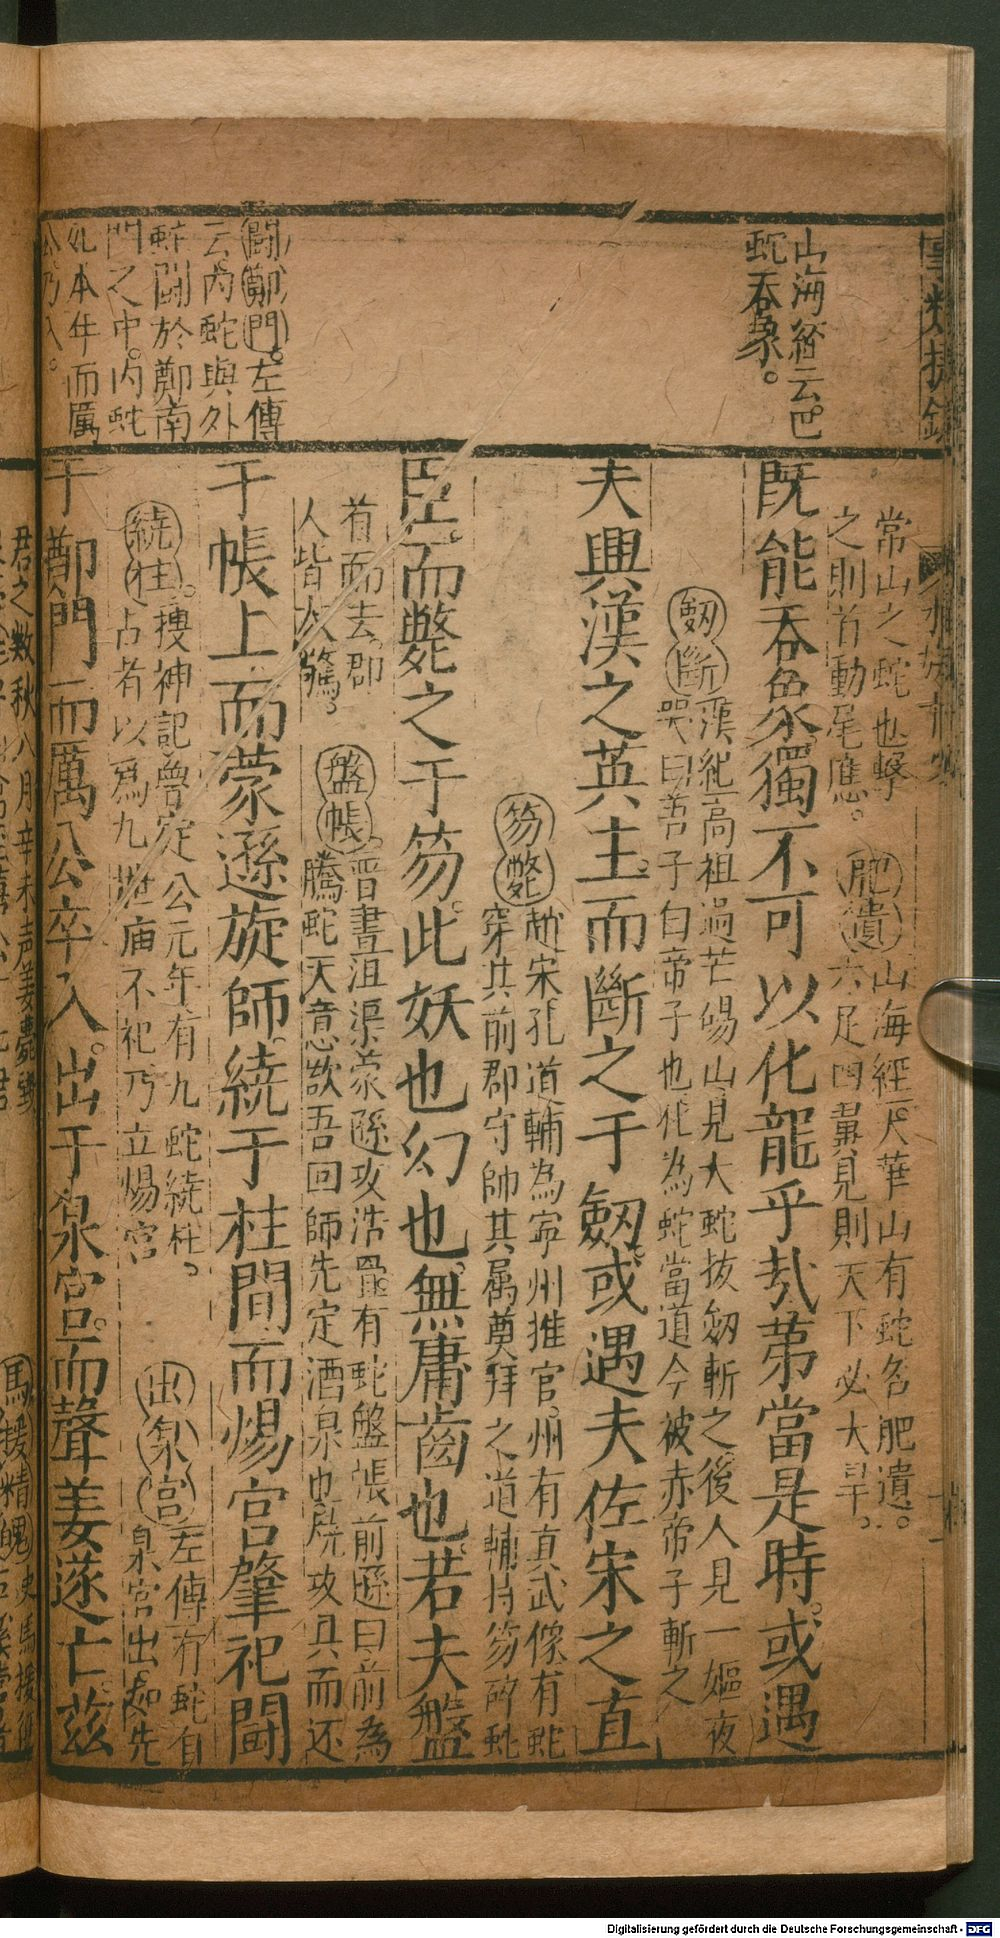 山海經云巴
蛇吞象。
闘鄭門。左傳
云。內蛇與外
蛇闘於鄭南
門之中。內蛇
死本年而厲
公乃入。
常山之蛇也擊
之則首動尾應。
肥遺山海經太華山有蛇名肥遺。
六足四翼見則天下必大旱。
既能吞象獨不可以化龍乎哉第當是時。或遇
劔斷漢紀高祖過芒碭山見大蛇拔劔斬之後人見一嫗夜
哭曰吾子白帝子也化為蛇當道今被赤帝子斬之
夫興漢之英主。而斷之于劔。或遇夫佐宋之直
笏斃趙宋孔道輔為寧州推官。州有真武像有蛇
穿其前郡守帥其属奠拜之道輔持笏碎蛇
臣。而斃之于笏。此妖也幻也。無庸齒也。若夫盤
首而去郡
人皆大驚。
盤帳。晋書沮渠蒙遜攻浩亹有蛇盤帳前遜曰前為
騰蛇天意欲吾回師先定酒泉也燒攻具而还
于帳上而蒙遜旋師。繞于柱間而煬宮肇祀闘
繞柱。搜神記魯定公元年有九蛇繞柱。
占者以為九世庙不祀乃立煬宮
出泉宮左傳有蛇自
泉宮出。如先
于鄭門而厲公卒入。出于泉宮。而聲姜遂亡。茲
君之數秋八月辛未声姜薨毀
Digitalisierung gefördert durch die Deutsche Forschungsgemeinschaft - DFG